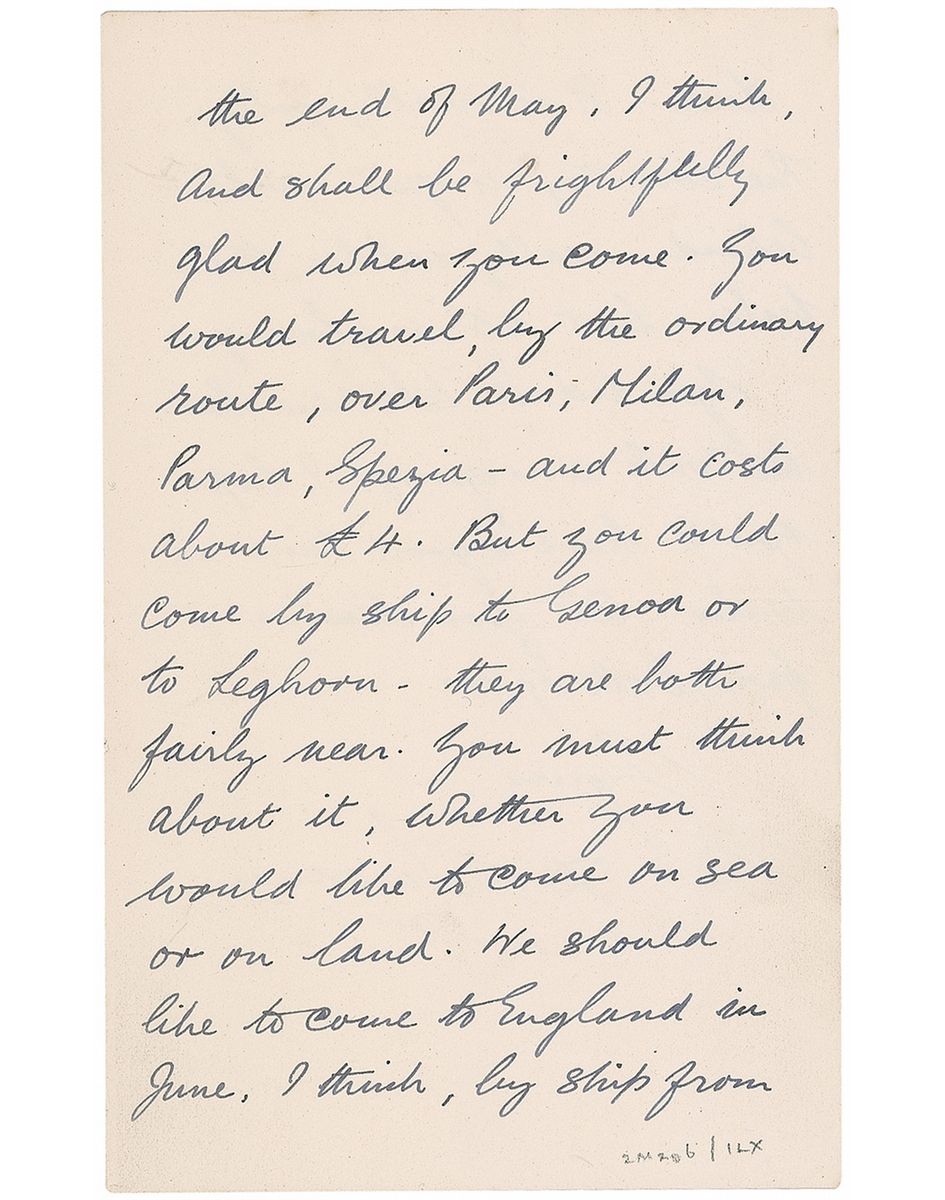 the end of May, I think,
And shall be frightfully
glad when you come. You
would travel, by the ordinary
route, over Paris, Milan,
Parma, Spezia – and it costs
about £4. But you could
come by ship to Genoa or
to Leghorn – they are both
fairly near. You must think
about it, whether you
would like to come on sea
or on land. We should
like to come to England in
June, I think, by ship from